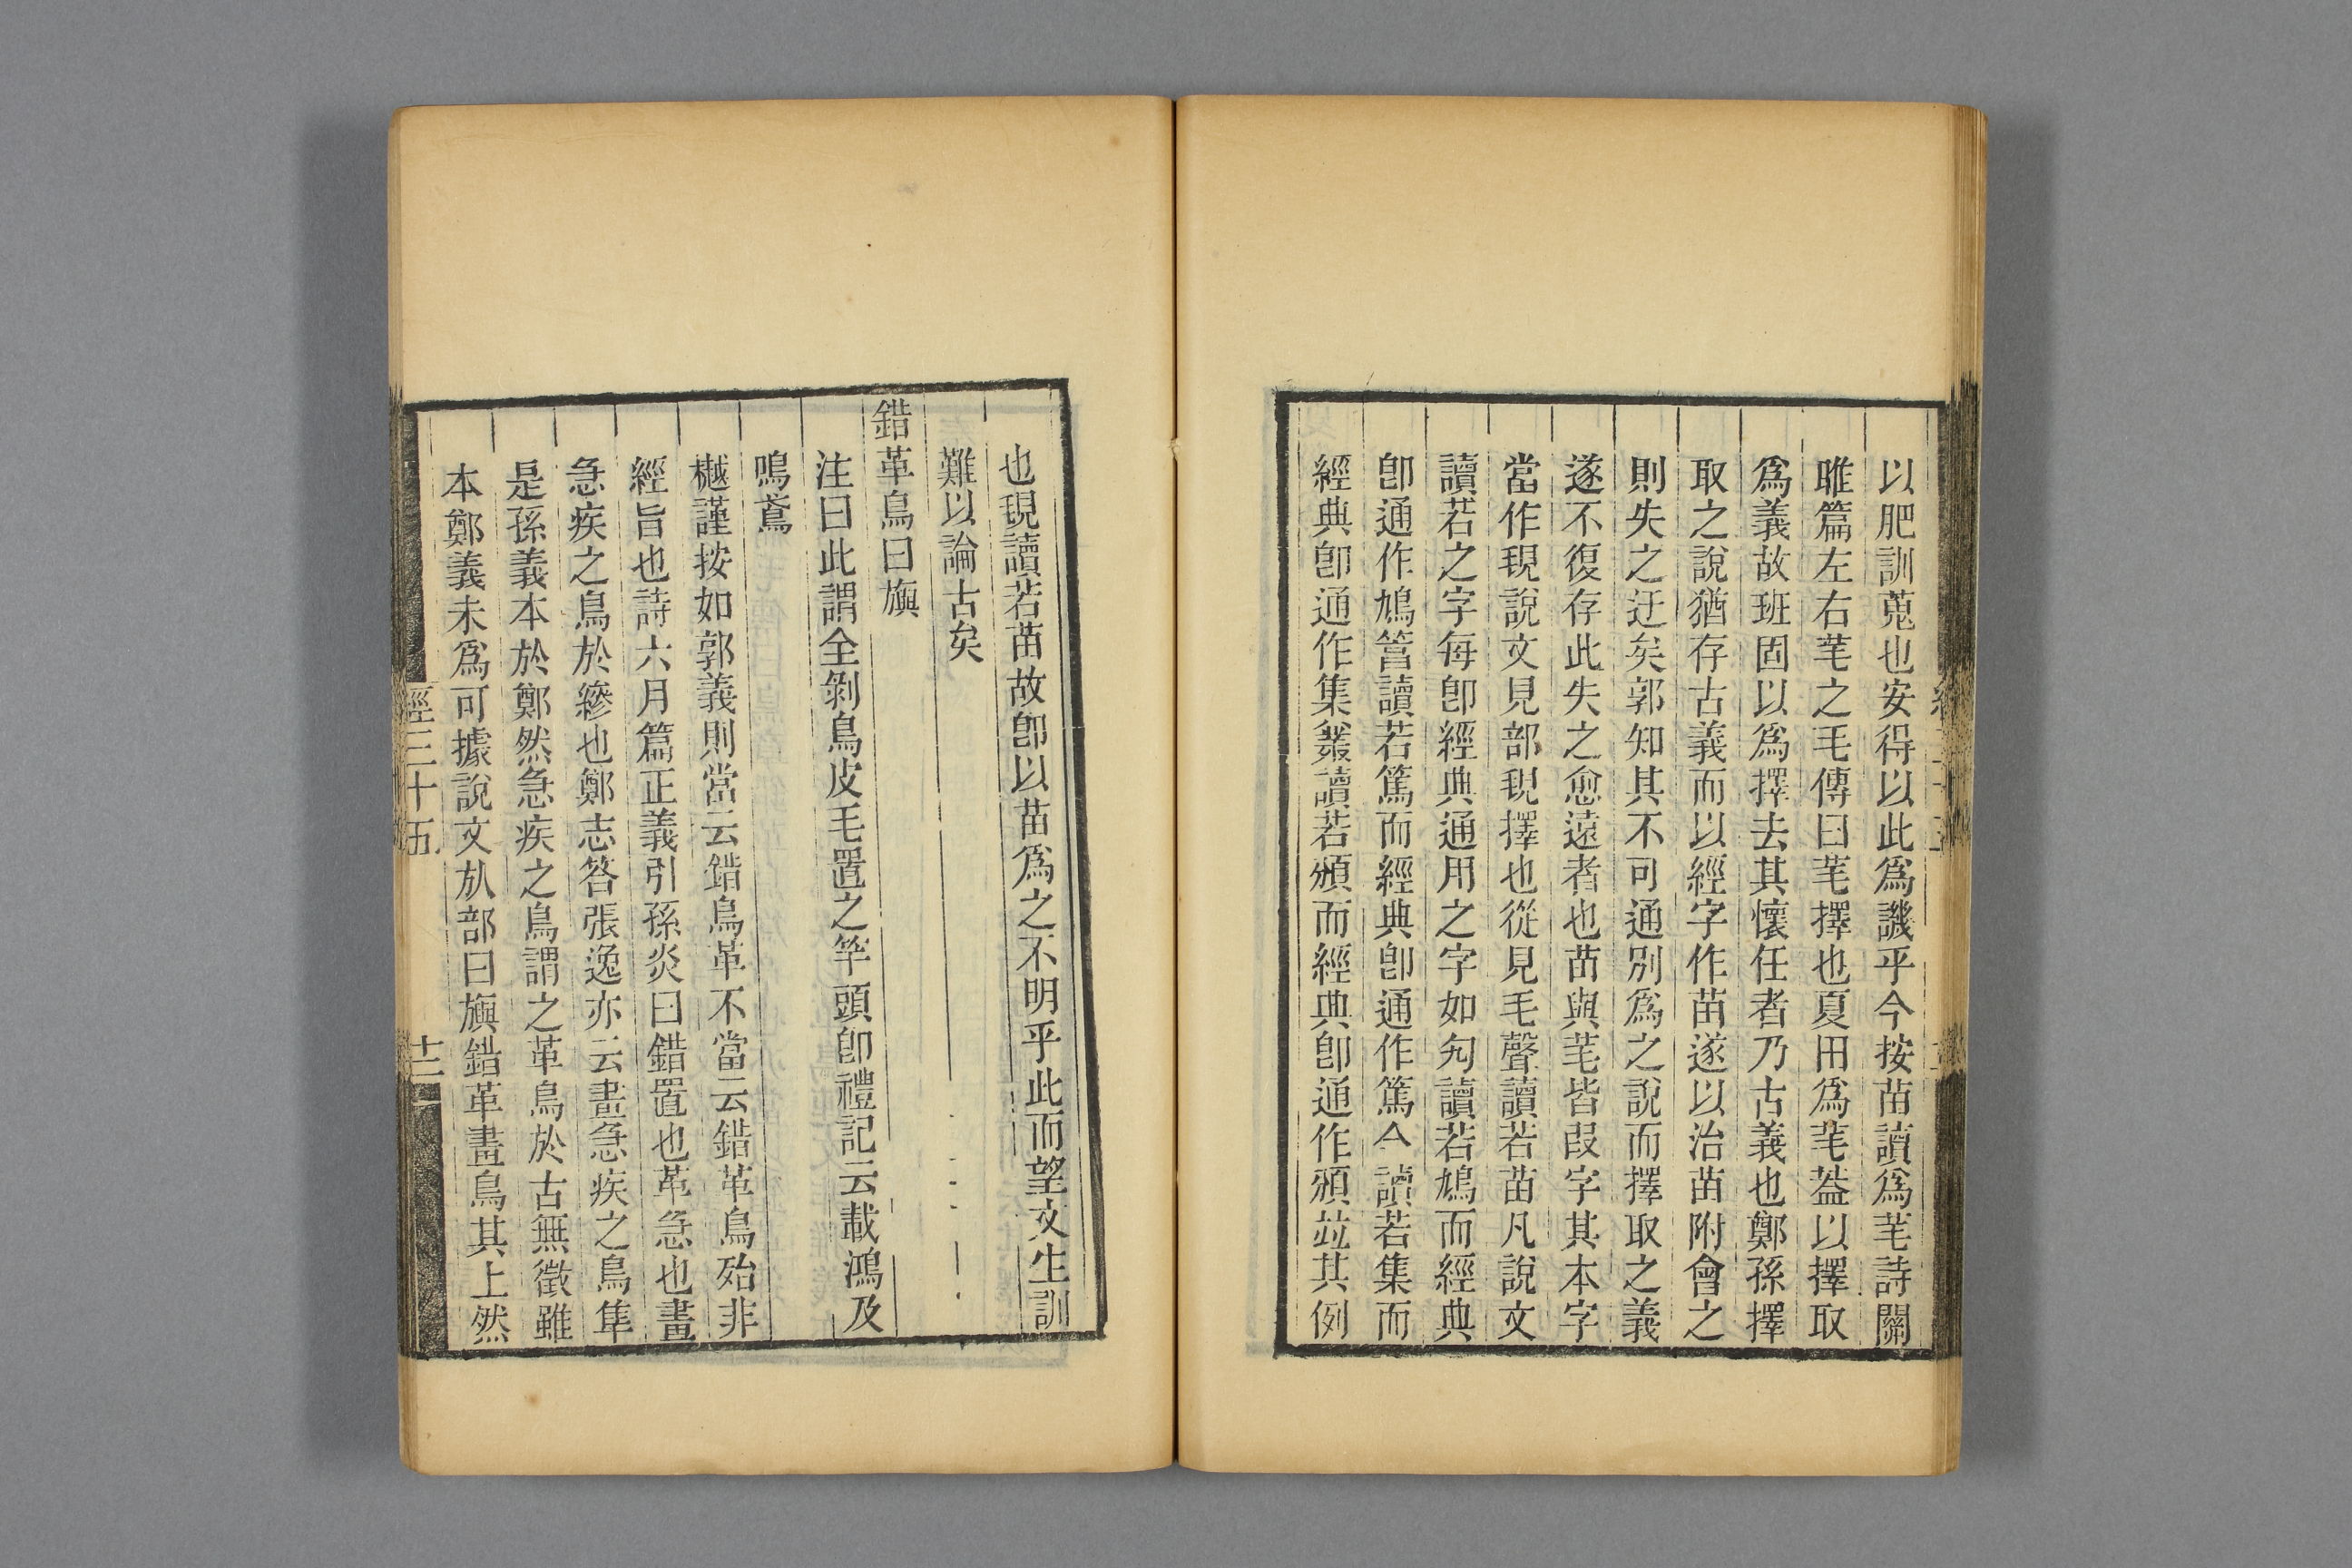 以肥訓蒐也安得以此爲譏乎今按苗讀爲芼詩關
雎篇左右芼之毛傳曰芼擇也夏田爲芼葢以擇取
爲義故班固以爲擇去其懷任者乃古義也鄭孫擇
取之說猶存古義而以經字作苗遂以治苗附會之
則失之迂矣郭知其不可通別爲之說而擇取之義
遂不復存此失之愈遠者也苗與芼皆叚字其本字
當作覒說文見部覒擇也從見毛聲讀若苗凡說文
讀若之字每卽經典通用之字如勼讀若鳩而經典
卽通作鳩䈞讀若篤而經典卽通作篤亼讀若集而
經典卽通作集䉵讀若頒而經典卽通作頒竝其例
也覒讀若苗故卽以苗爲之不明乎此而望文生訓
難以論古矣
錯革鳥曰旟
注曰此謂全剝鳥皮毛置之竿頭卽禮記云載鴻及
鳴鳶
樾謹按如郭義則當云錯鳥革不當云錯革鳥殆非
經旨也詩六月篇正義引孫炎曰錯置也革急也畫
急疾之鳥於縿也鄭志答張逸亦云畫急疾之鳥隼
是孫義本於鄭然急疾之鳥謂之革鳥於古無徵雖
本鄭義未爲可據說文㫃部曰旟錯革畫鳥其上然
經三十五
十二